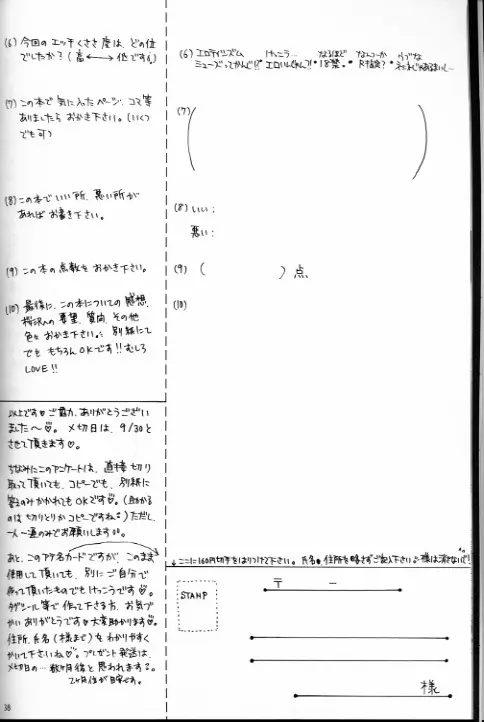 (6) 今回の エッチくささ度は、どの位
でしたか? (高 ←→ 低です)
(7) この本で 気に入ったページ、コマ等
ありましたら おかき下さい。(いくつ
でも可)
(8) この本で いい所、悪い所が
あれば お書き下さい。
(9) この本の 点数を おかき下さい。
(10) 最後に、この本についての 感想、
要望、質問、その他
色々 おかき下さい。別紙にて
でも もちろんOKです!! むしろ
LOVE!!
以上です♥ ご協力、ありがとうござい
ました〜♡。〆切日は、9/30と
させて頂きます♡。
ちなみにこのアンケートは、直接切り
取って頂いても、コピーでも、別紙に
答えのみかかれても OKです♡。(助かる
のは 切りとりか コピーですね)ただし、
一人一通のみでお願いします
あと、このアテ名カードですが、このまま
使用して頂いても、別に ご自分で
作って頂いたものでも けっこうです♡。
タグシール等で 作って下さる方、お気づ
かい ありがとうです♥ 大変助かります♡。
住所、氏名(様まで)を わかりやすく
かいて下さいね♡。プレゼント発送は、
〆切日の… 数ヶ月後と 思われます
2ヶ月位が目安です。
38
(6) エロティシズム けっこう… なるほど なんつーか
ミューズってかんじ!! 18禁。
(7) ( )
(8) いい:
悪い:
(9) ( ) 点
(10)
↓ここに160円切手をはりつけて下さい。氏名・住所を略さずご記入下さい。様は消さないで!
STAMP
〒 -
様